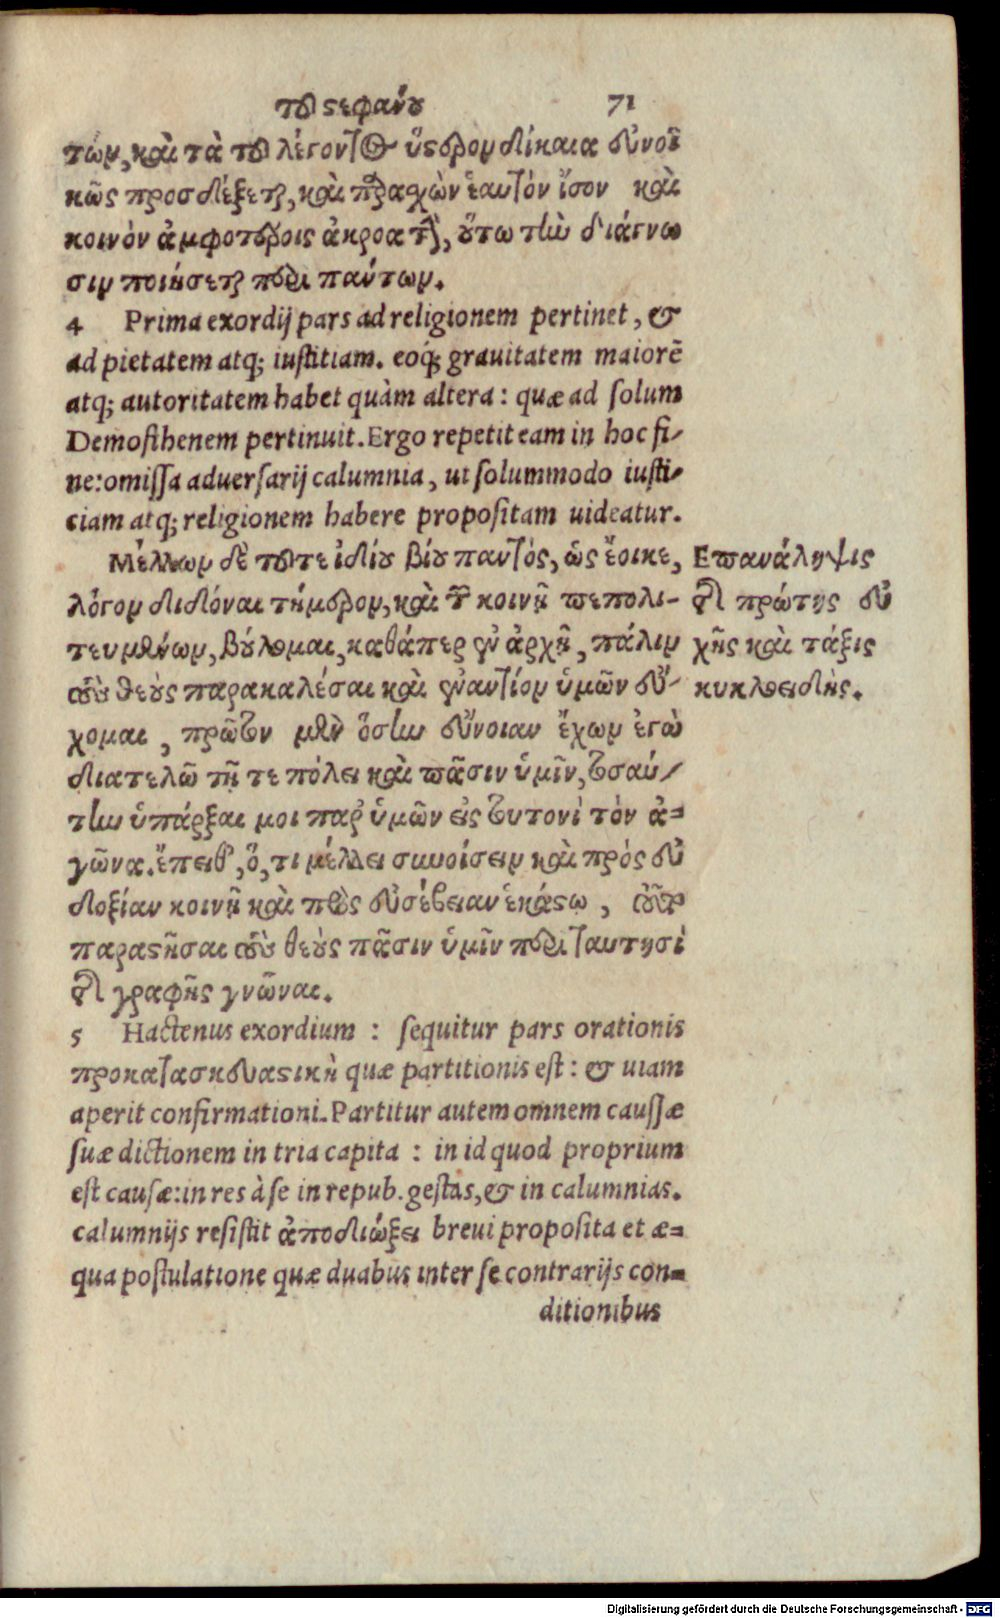 τοῦ στεφάνου 71
των, καὶ τὰ τοῦ λέγοντος ὕστερον δίκαια εὐνοϊ
κῶς προσδέξεται, καὶ παραχὼν ἑαυτὸν ἴσον καὶ
κοινὸν ἀμφοτέροις ἀκροατὴν, οὕτω τὴν διάγνω
σιν ποιήσεται περὶ πάντων.
4 Prima exordij pars ad religionem pertinet, &
ad pietatem atq; iustitiam. eoq́; grauitatem maiorē
atq; autoritatem habet quàm altera: quæ ad solum
Demosthenem pertinuit. Ergo repetit eam in hoc fi-
ne: omissa aduersarij calumnia, ut solummodo iusti-
ciam atq; religionem habere propositam uideatur.
Μέλλων δὲ τοῦ τε ἰδίου βίου παντὸς, ὡς ἔοικε,
λόγον διδόναι τήμερον, καὶ τῶν κοινῇ πεπολι-
τευμένων, βούλομαι, καθάπερ ἐν ἀρχῇ, πάλιν
τοὺς θεοὺς παρακαλέσαι καὶ ἐναντίον ὑμῶν εὔ-
χομαι, πρῶτον μὲν ὅσην εὔνοιαν ἔχων ἐγὼ
διατελῶ τῇ τε πόλει καὶ πᾶσιν ὑμῖν, τοσαύ-
την ὑπάρξαι μοι παρ' ὑμῶν εἰς τουτονὶ τὸν ἀ-
γῶνα. ἔπειθ', ὅ, τι μέλλει συνοίσειν καὶ πρὸς εὐ
δοξίαν κοινῇ καὶ πρὸς εὐσέβειαν ἑκάστῳ, τοῦτο
παραστῆσαι τοὺς θεοὺς πᾶσιν ὑμῖν περὶ ταυτησὶ
τῆς γραφῆς γνῶναι.
Ἐπανάληψις
τῆς πρώτης εὐ
χῆς καὶ τάξις
κυκλοειδὴς.
5 Hactenus exordium: sequitur pars orationis
προκατασκευαστικὴ quæ partitionis est: & uiam
aperit confirmationi. Partitur autem omnem caussæ
suæ dictionem in tria capita: in id quod proprium
est causæ: in res à se in repub. gestas, & in calumnias.
calumnijs resistit ἀποδιώξει breui proposita et æ-
qua postulatione quæ duabus inter se contrarijs con-
ditionibus
Digitalisierung gefördert durch die Deutsche Forschungsgemeinschaft - DFG